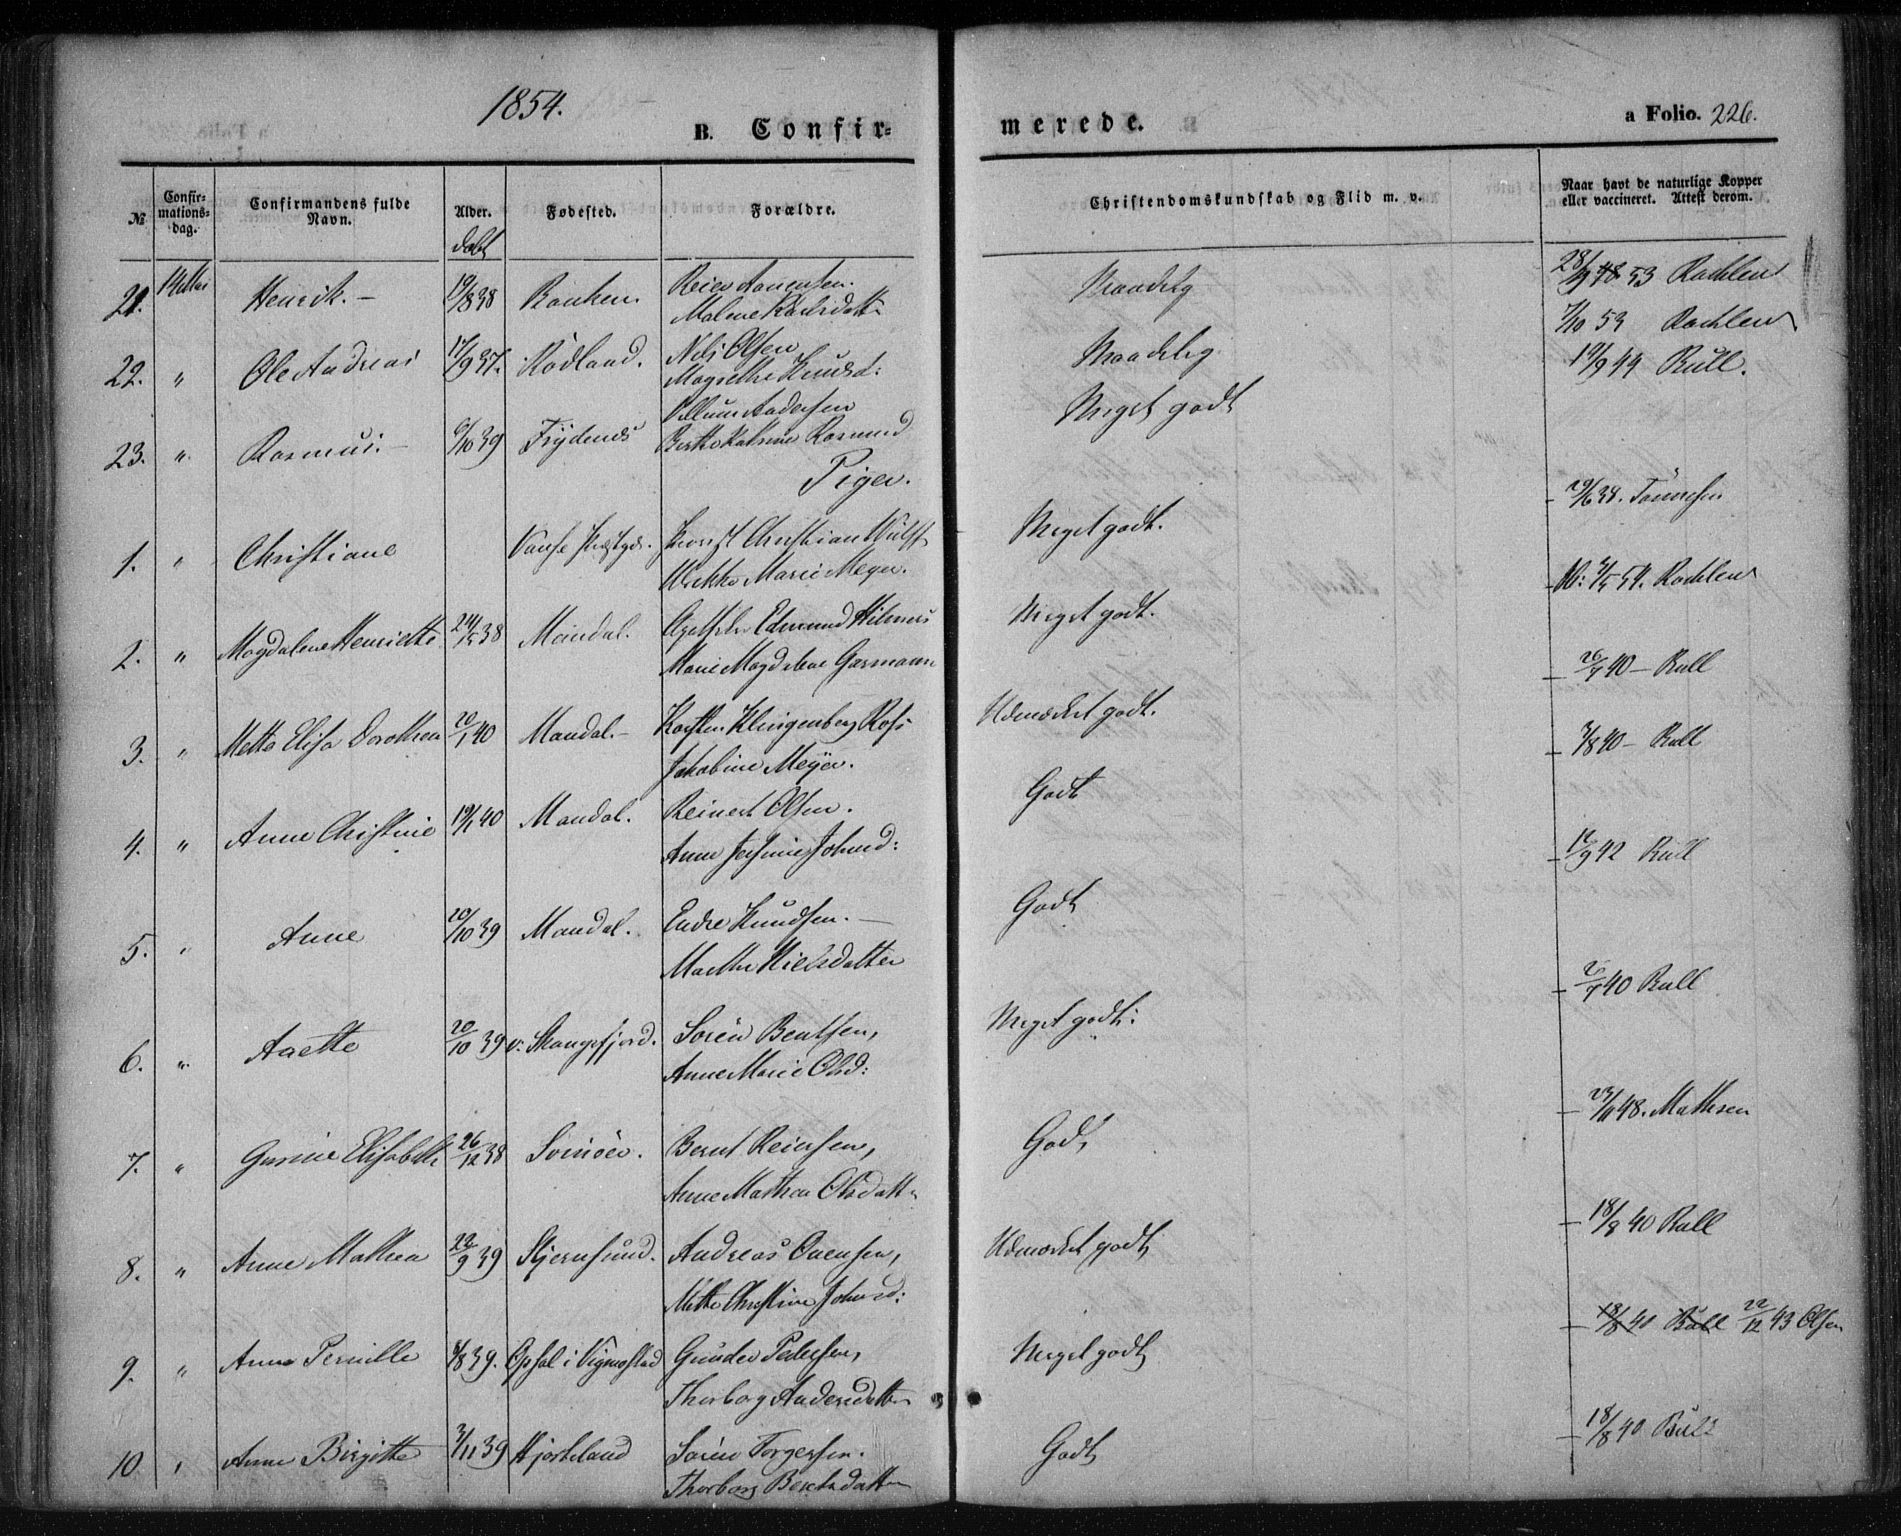 1854.
B. Confir-
merede. a Folio. 226.
No
Confir-
mations-
dag.
Confirmandens fulde
Navn.
Alder.
døbt
Fødested.
Forældre.
Christendomskundskab og Flid m. v.
Naar havt de naturlige Kopper
eller vaccineret. Attest derom.
21. 14 Mai Henrik. – 19/8 38 Banken.
Malene
Maadelig
53 Rachlew
22. " Ole Andreas 17/9 37. Rødland. Nils Olsen
Knudsd:
Maadelig.
7/10 53 Rachlew
23. " Rasmus. – 6/10 39 Frydenes
Andersen
Meget godt
19/9 44 Bull.
Piger.
1. " Christiane Vanse Christian Wulff
Marie Meyer.
Meget godt.
– 29/6 38. Tønnesen
2. " Magdalene Henriette 24/5 38 Mandal. Edmund Hilmers
Marie Magdalene Garmann
Meget godt.
54. Rachlew
3. " Mette Elisa Dorothea 20/1 40 Mandal. – Karsten Klingenberg Ross
Jakobine Meyer.
Udmærket godt.
– 26/7 40 – Bull
4. " Anne Christine 19/1 40 Mandal. Reinert Olsen.
Anne Johnsd:
Godt
– 7/8 40 – Bull
5. " Anne 20/10 39 Mandal. Endre Knudsen. –
Marthe Nielsdatter
Godt
– 12/9 42 Bull
6. " Anette 20/10 39 v: Skougsfjord. Søren Bentsen,
Anne Marie Olsd:
Meget godt:
– 2/7 40 Bull
7. " Gurine Elisabeth 26/12 38 Svinøer. Bernt Reiersen,
Anne Mathea Olsdatt.
Godt
– 23/11 48. Mathsen
8. " Anne Mathea 22/9 39 Stjernsund. Andreas Ouensen,
Mette Christine Johnsd:
Udmærket godt
– 18/8 40 Bull
9. " Anne Pernille 4/8 39. Opsal i Vigmostad Gunder Pedersen,
Thorborg Andersdatter
Meget godt
– 18/8 40 Bull 22/12 43 Olsen
10 " Anne Birgitte 3/11 39 Hjorteland Søren Torgersen.
Thorborg Berntsdatter
Godt
– 18/8 40 Bull